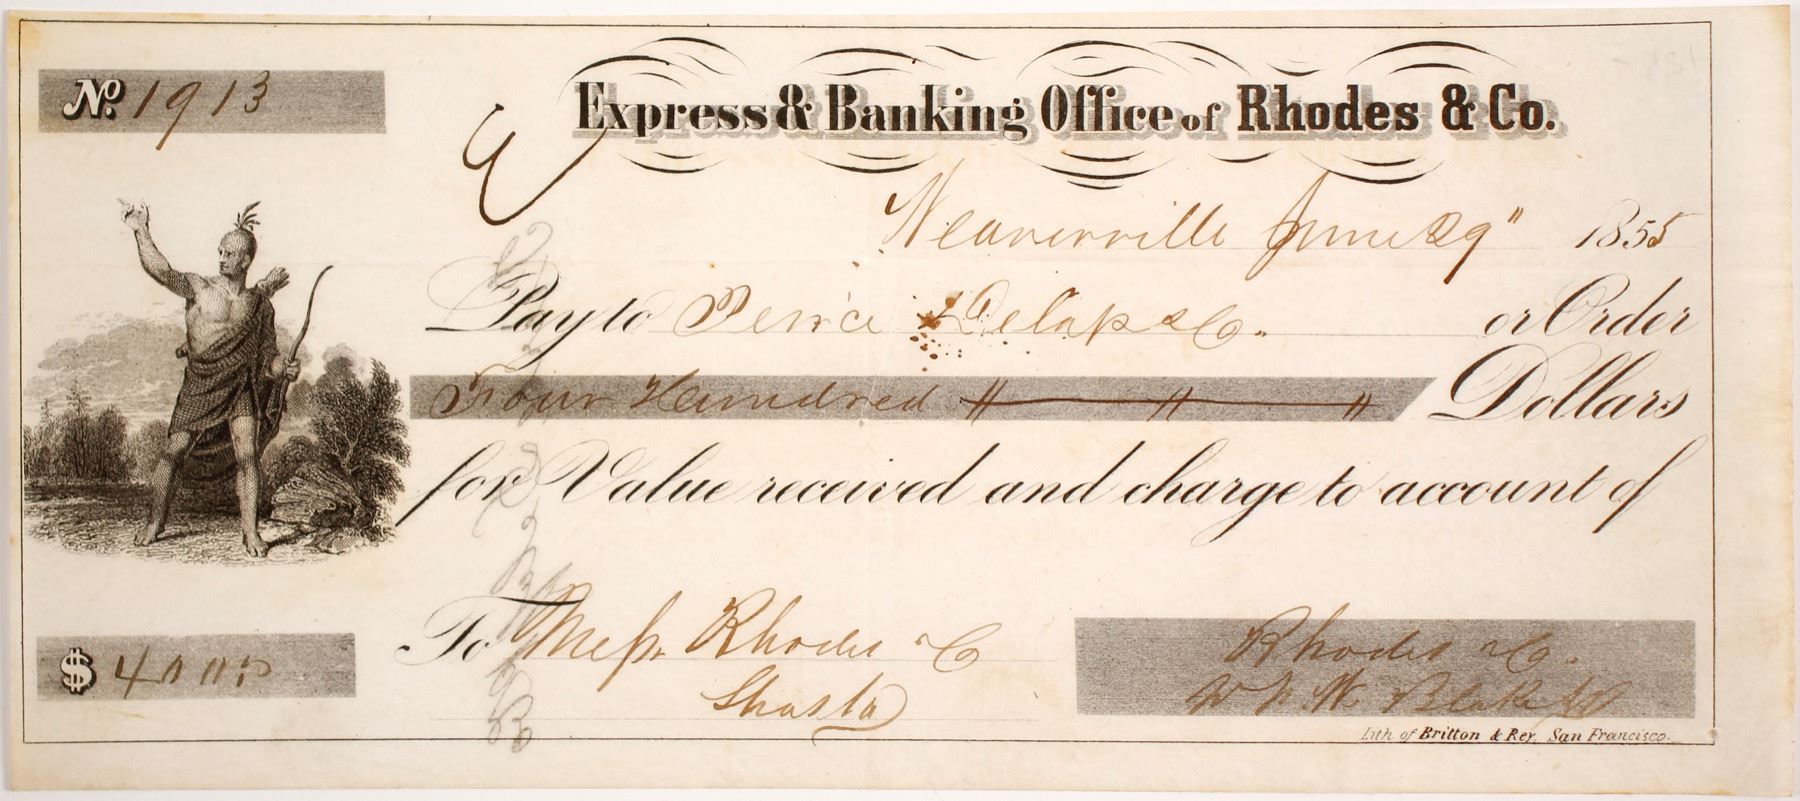 No. 1913
Express & Banking Office of Rhodes & Co.
Weaverville June 29" 1855
Pay to Peirce Delap & Co. or Order
Four Hundred Dollars
for Value received and charge to account of
To Mess. Rhodes & Co
Shasta
Rhodes & Co.
W. Blake
$ 400 00
Lith of Britton & Rey, San Francisco.